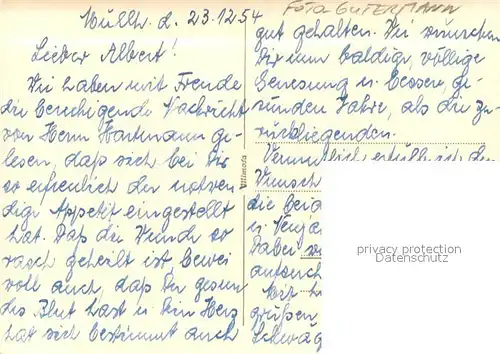 Müllh. d. 23.12.54
Lieber Albert!
Wir haben mit Freude
die beruhigende Nachricht
von Herrn Hartmann ge-
lesen, daß sich bei Dir
so erfreulich der notwen
dige Appetit eingestellt
hat. Daß die Wunde so
rasch geheilt ist, bewei
voll auch, daß Du gesun
des Blut hast u. Dein Herz
hat sich bestimmt auch
Ultimoda
FOTO GUTERMANN
gut gehalten. Wir wünschen
Dir nun baldige, völlige
Genesung u. bessere, ge-
sunden Jahre, als die zu-
rückliegenden.
Vermutlich erfüllt sich der
Wunsch
die
u. Neuja
Dabei
Mit
grüßen
Schwäg
privacy protection
Datenschutz